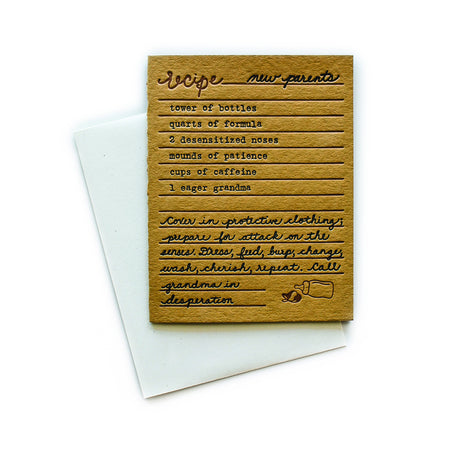 recipe new parents
tower of bottles
quarts of formula
2 desensitized noses
mounds of patience
cups of caffeine
1 eager grandma
Cover in protective clothing;
prepare for attack on the
senses. Dress, feed, burp, change,
wash, cherish, repeat. Call
grandma in
desperation